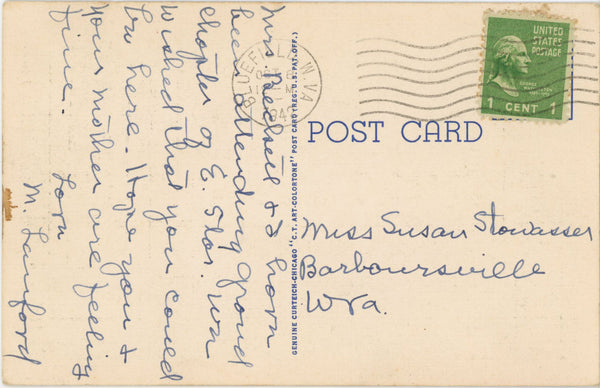 Mrs. & I have
been attending Grand
Chapter of E. Star. We
wished that you could
be here. Hope you &
your mother are feeling
fine.
Love
M. Lanford
BLUEFIELD W VA
OCT
POST CARD
GENUINE CURTEICH-CHICAGO "C.T. ART-COLORTONE" POST CARD (REG. U.S. PAT. OFF.)
UNITED
STATES
POSTAGE
GEORGE
WASHINGTON
1 CENT 1
Miss Susan Stowasser
Barboursville
W Va.